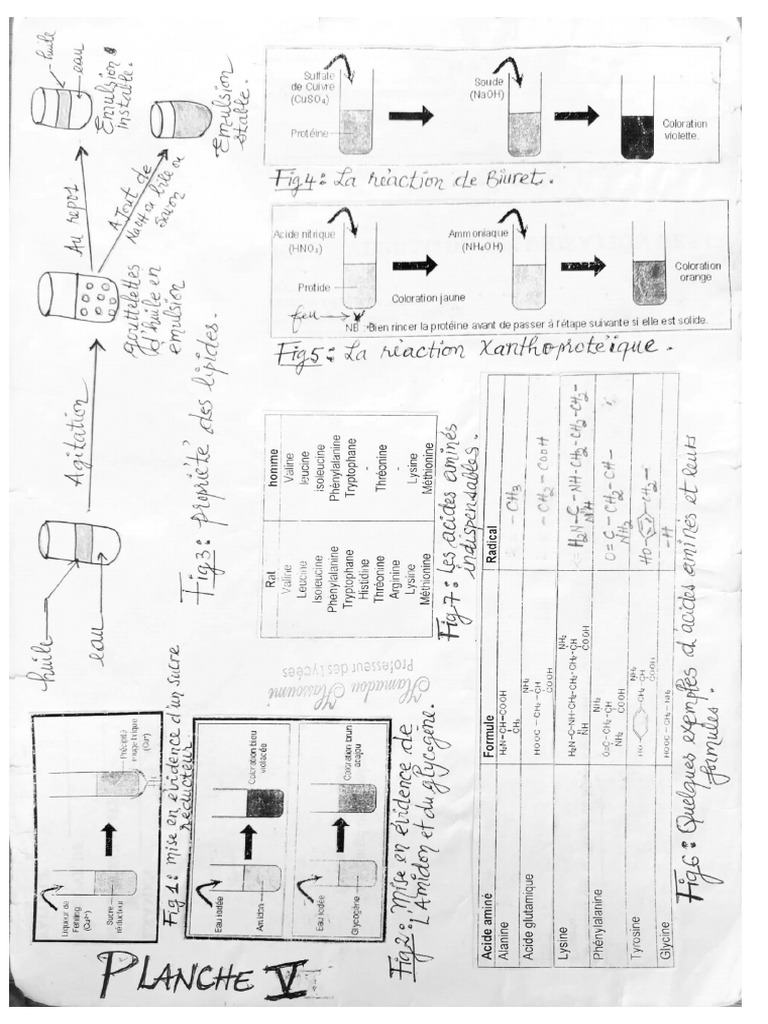 PLANCHE V
Liqueur de
Fehling
(Cu²⁺)
Sucre
réducteur
Précipité
rouge brique
(Cu⁺)
Fig1: mise en évidence d'un sucre
réducteur
Eau iodée
Amidon
Coloration bleu
violacée
Eau iodée
Glycogène
Coloration brun
acajou
Fig2: Mise en évidence de
L'Amidon et du glycogène.
huile
eau
Agitation
gouttelettes
d'huile en
emulsion
Au repos
AJout de
NaOH ou bile ou
savon
huile
eau
Emulsion
instable.
Emulsion
Stable.
Fig3: Propriété des lipides.
Sulfate
de Cuivre
(CuSO₄)
Protéine
Soude
(NaOH)
Coloration
violette.
Fig4: La réaction de Biuret.
Acide nitrique
(HNO₃)
Protide
feu
Coloration jaune
Ammoniaque
(NH₄OH)
Coloration
orange
NB : Bien rincer la protéine avant de passer à l'étape suivante si elle est solide.
Fig5: La réaction Xanthoprotéique.
Rat homme
Valine Valine
Leucine leucine
Isoleucine isoleucine
Phenylalanine Phénylalanine
Tryptophane Tryptophane
Histidine -
Thréonine Thréonine
Arginine -
Lysine Lysine
Méthionine Méthionine
Fig7: les acides aminés
indispensables.
Hamadou Hassoumi
Professeur des Lycées
Acide aminé Formule Radical
Alanine H₂N—CH—COOH CH₃ -CH₃
Acide glutamique HOOC—CH₂—CH NH₂ COOH -CH₂-COOH
Lysine H₂N—C—NH—CH₂—CH₂—CH₂—CH NH NH₂ COOH H₂N-C-NH-CH₂-CH₂-CH₂- NH
Phénylalanine O=C—CH₂—CH NH₂ NH₂ COOH O=C-CH₂-CH- NH₂
Tyrosine HO CH₂—CH NH₂ COOH HO CH₂-
Glycine HOOC—CH₂—NH₂ -H
Fig6: Quelques exemples d'acides aminés et leurs
formules.